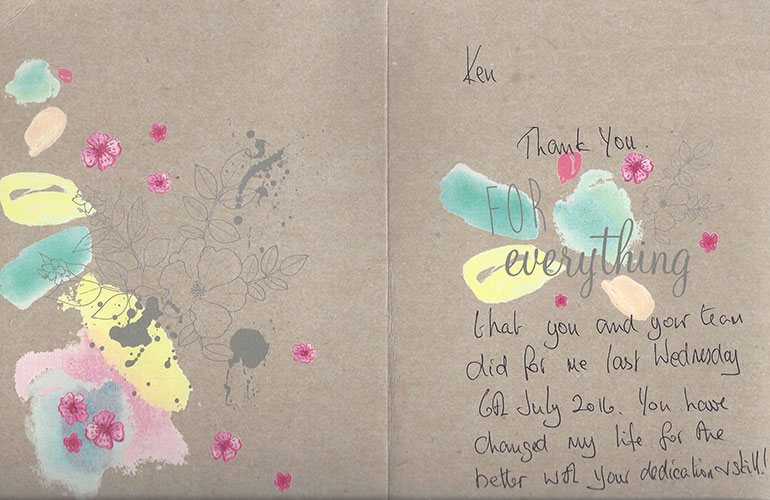 Ken
Thank You.
FOR
everything
that you and your team
did for me last Wednesday
6th July 2016. You have
changed my life for the
better with your dedication & skill!